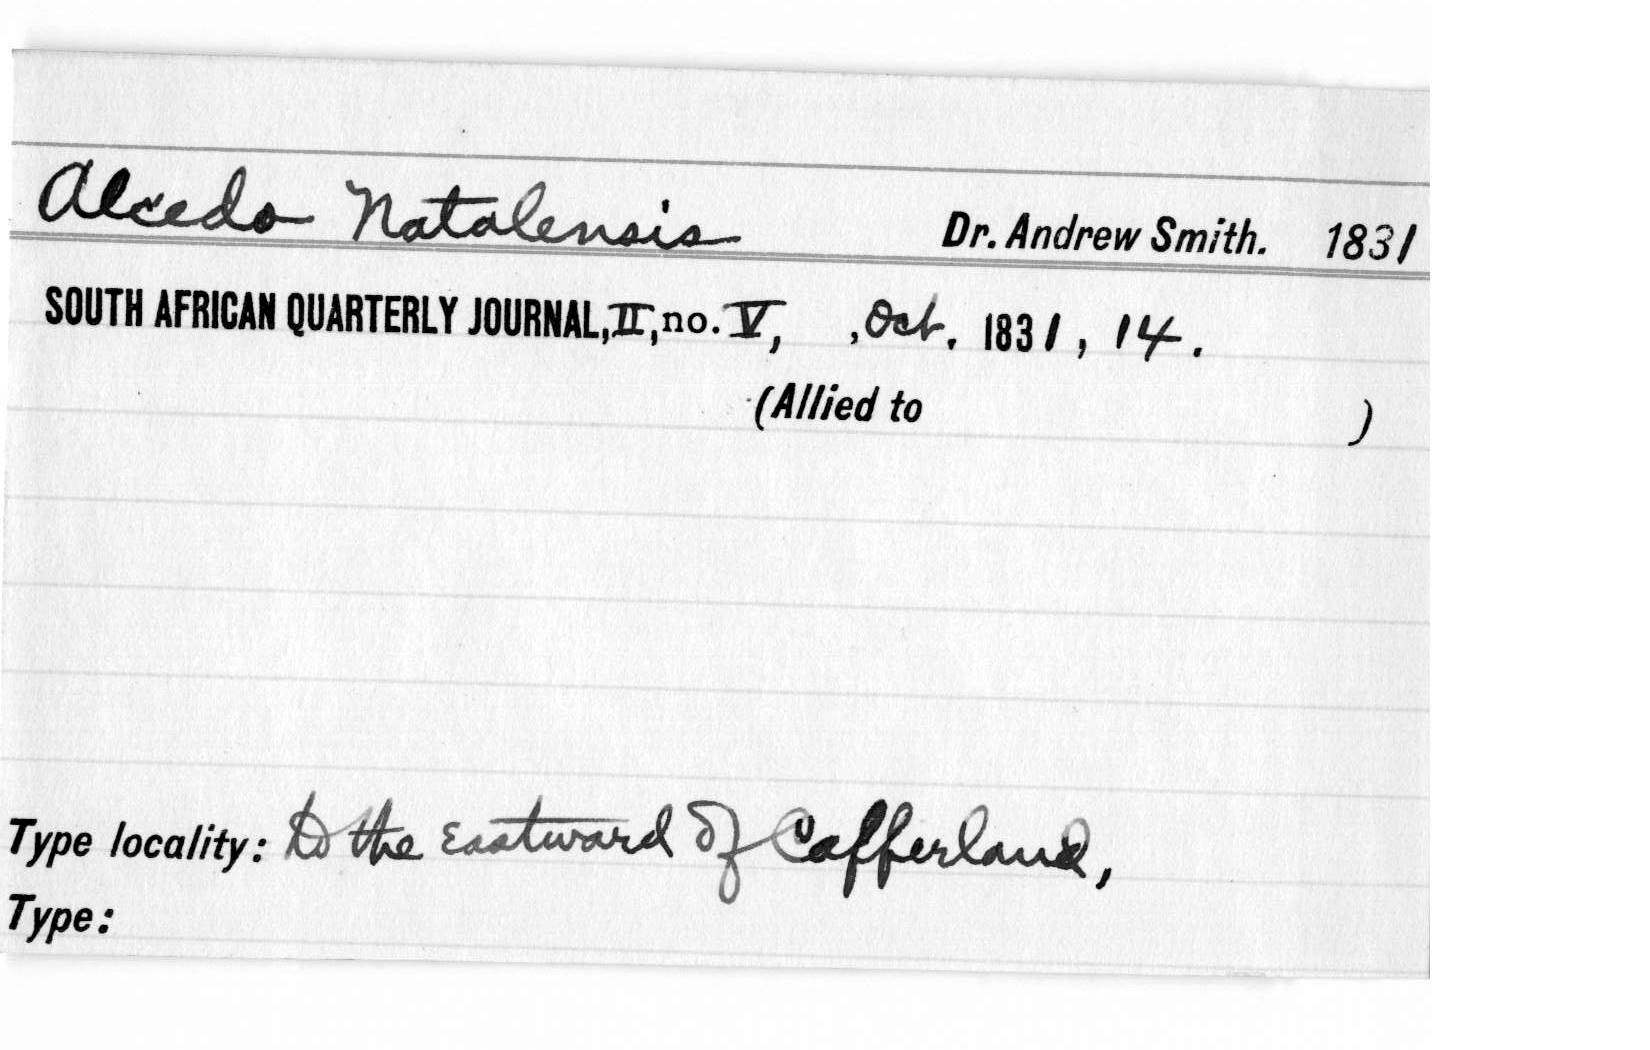 Alcedo Natalensis Dr. Andrew Smith. 1831
SOUTH AFRICAN QUARTERLY JOURNAL, II, no. V, , Oct. 1831, 14.
(Allied to )
Type locality: to the Eastward of Cafferland,
Type: